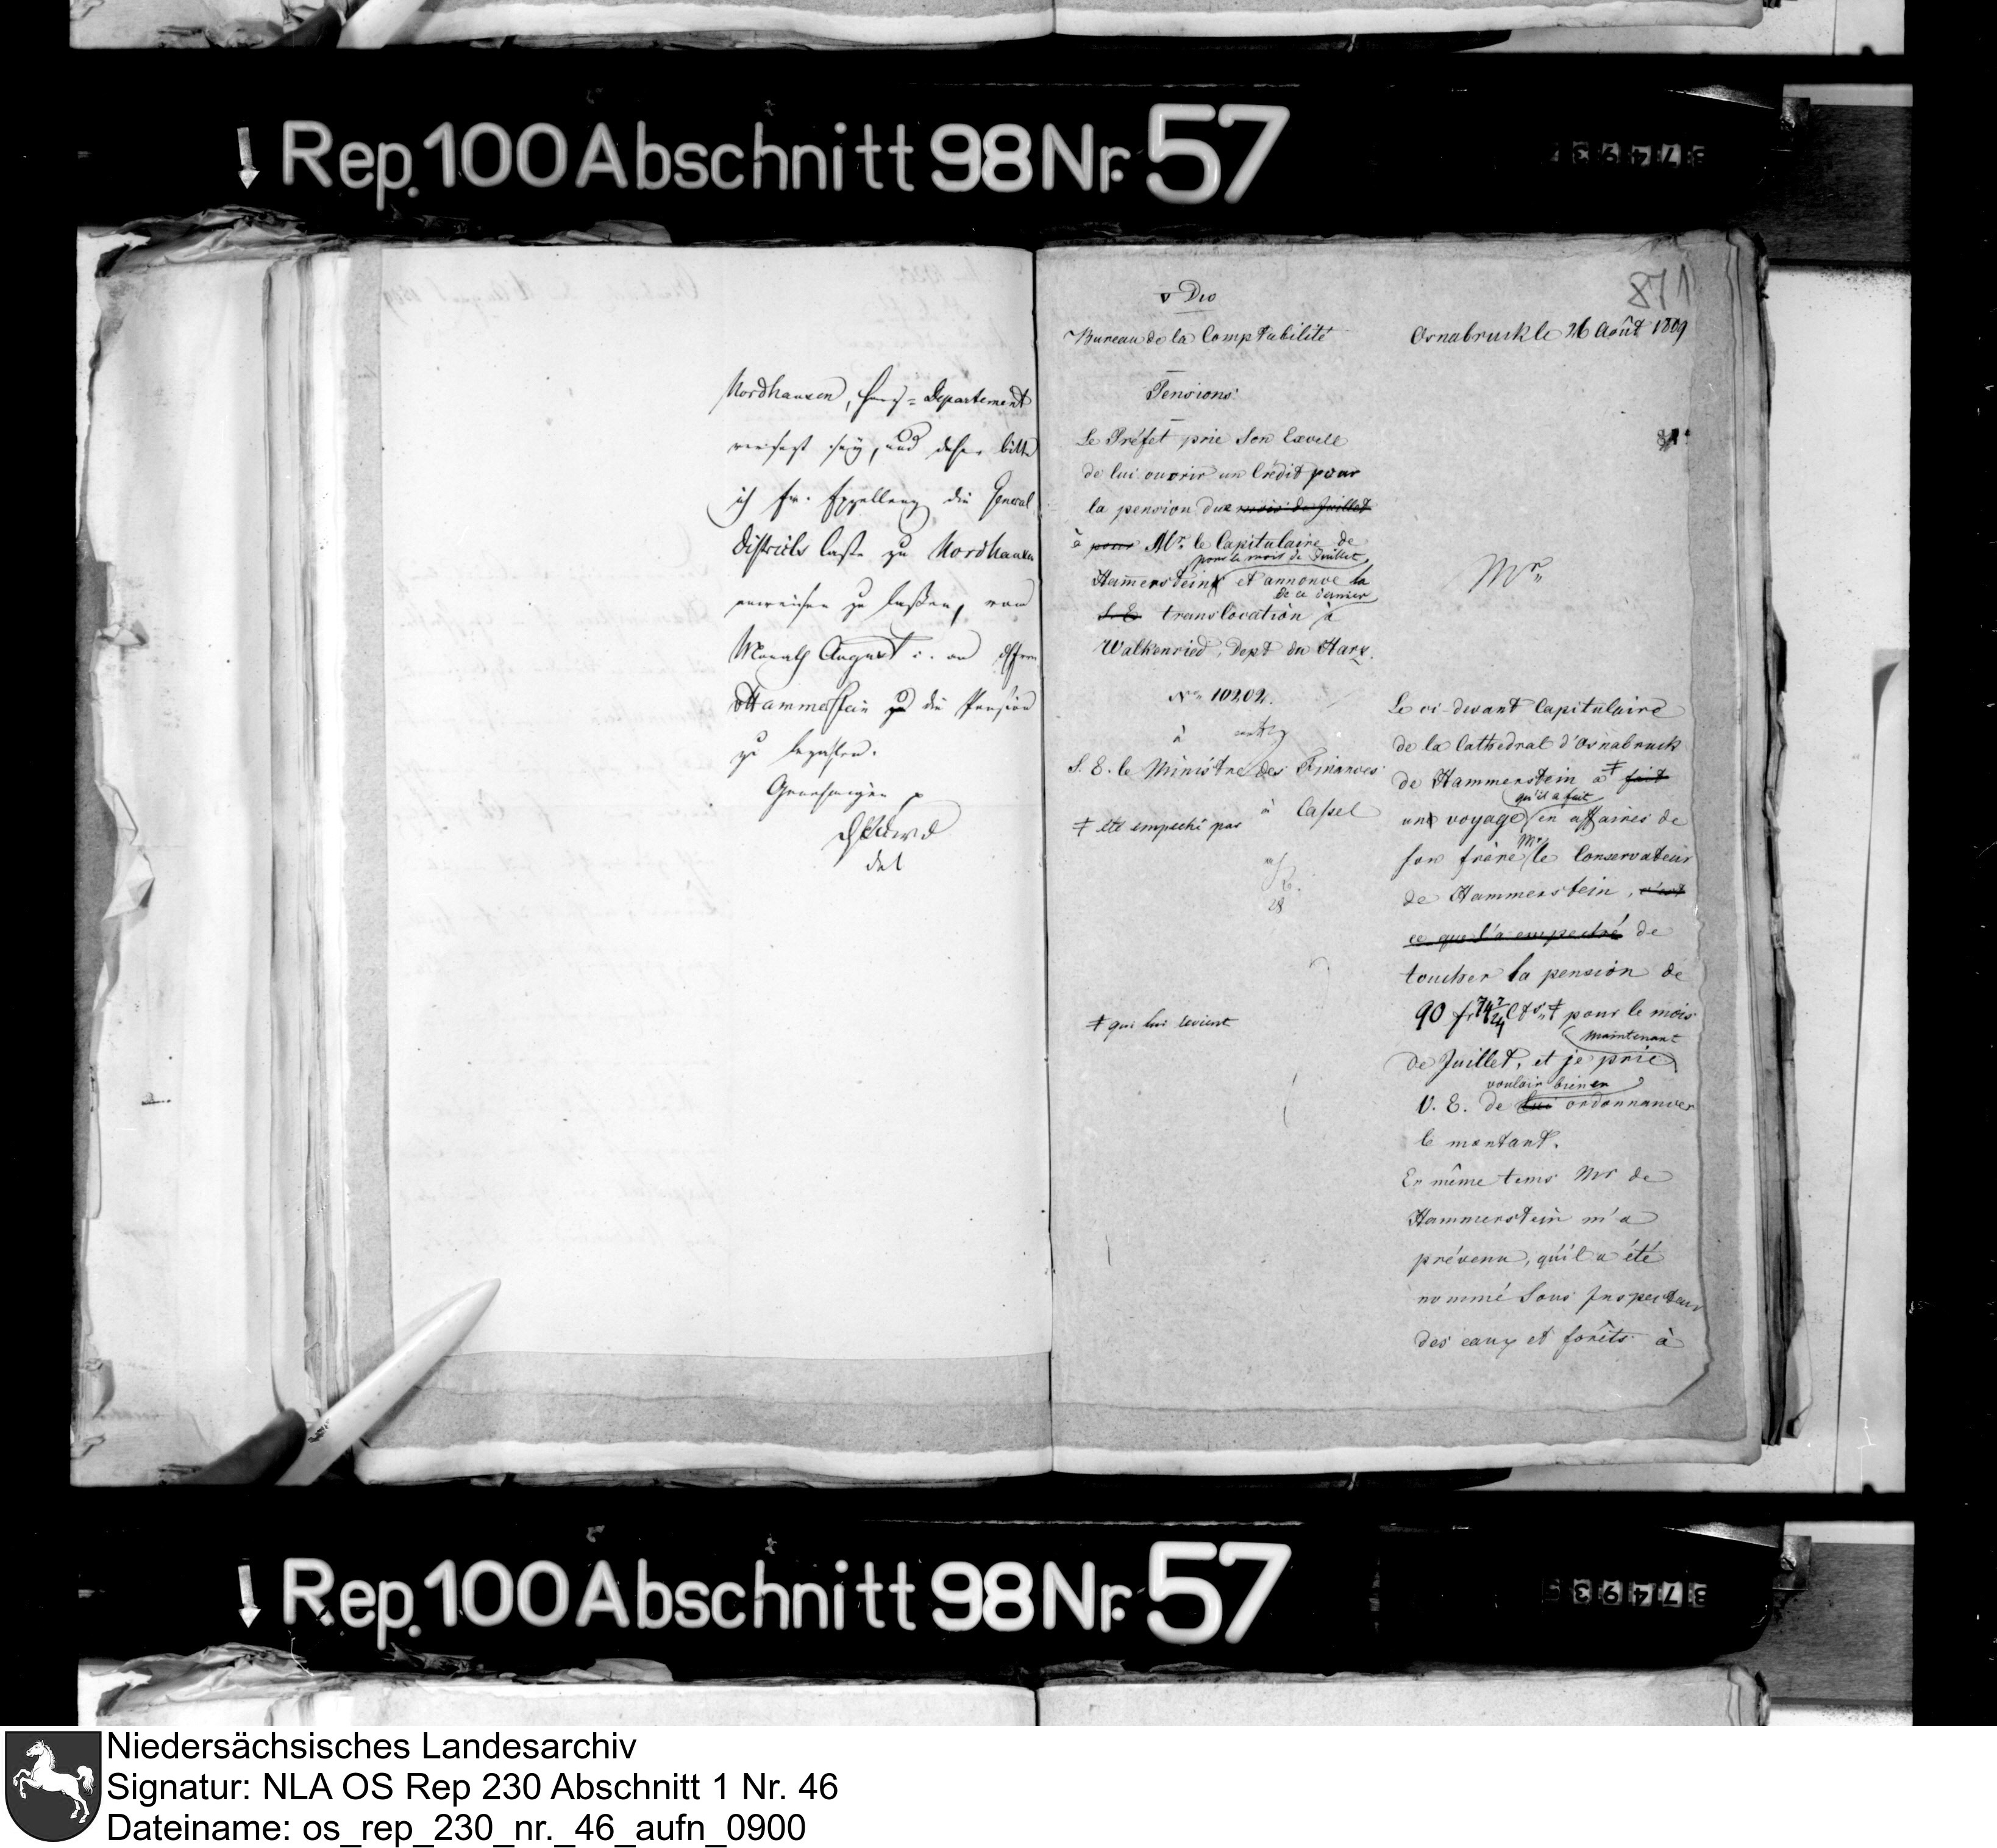 Rep. 100 Abschnitt 98 Nr. 57
Nordhausen, Harz=Departement
versetzt sey, und daher bitte
ich Ew. Excellenz die General
Districts Casse zu Nordhausen
anweisen zu laßen, vom
Monath August c. an
Hammerstein die Pension
zu bezahlen.
Genehmigen p
871
Bureau de la Comptabilité
Osnabruck le 26 Août 1809
Pensions
Le Préfet prie Son Excell
de lui ouvrir un Crédit pour
la pension due mois de Juillet
à pour Mr. le Capitulaire de
pour le mois de Juillet
Hammerstein et annonce la
de ce dernier
S. E. translocation à
Walkenried, Dept du Harz.
No. 10202.
à
S. E. le Ministre des Finances
à Cassel
‡ été empeché par
28
‡ qui lui revient
Mr.
Le ci-devant Capitulaire
de la Cathedral d'Osnabruck
de Hammerstein a ‡ fait
qu'il a fait
un voyage en affaires de
Mr
son frère le Conservateur
de Hammerstein, c'est
ce que l'a empeché de
toucher la pension de
90 fr 74 Cts ‡ pour le mois
maintenant
de Juillet, et je prie
vouloir bien en
V. E. de lui ordonnancer
le montant.
En même tems Mr de
Hammerstein m'a
prévenu, qu'il a été
nommé Sous Inspecteur
des eaux et forêts à
Rep. 100 Abschnitt 98 Nr. 57
Niedersächsisches Landesarchiv
Signatur: NLA OS Rep 230 Abschnitt 1 Nr. 46
Dateiname: os_rep_230_nr._46_aufn_0900